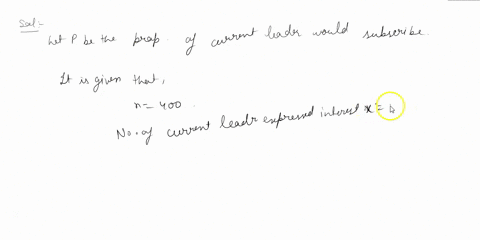 Sol:-
Let P be the prop. of current leadr would subscribe.
It is given that,
n = 400.
No. of current leadr expressed interest x =